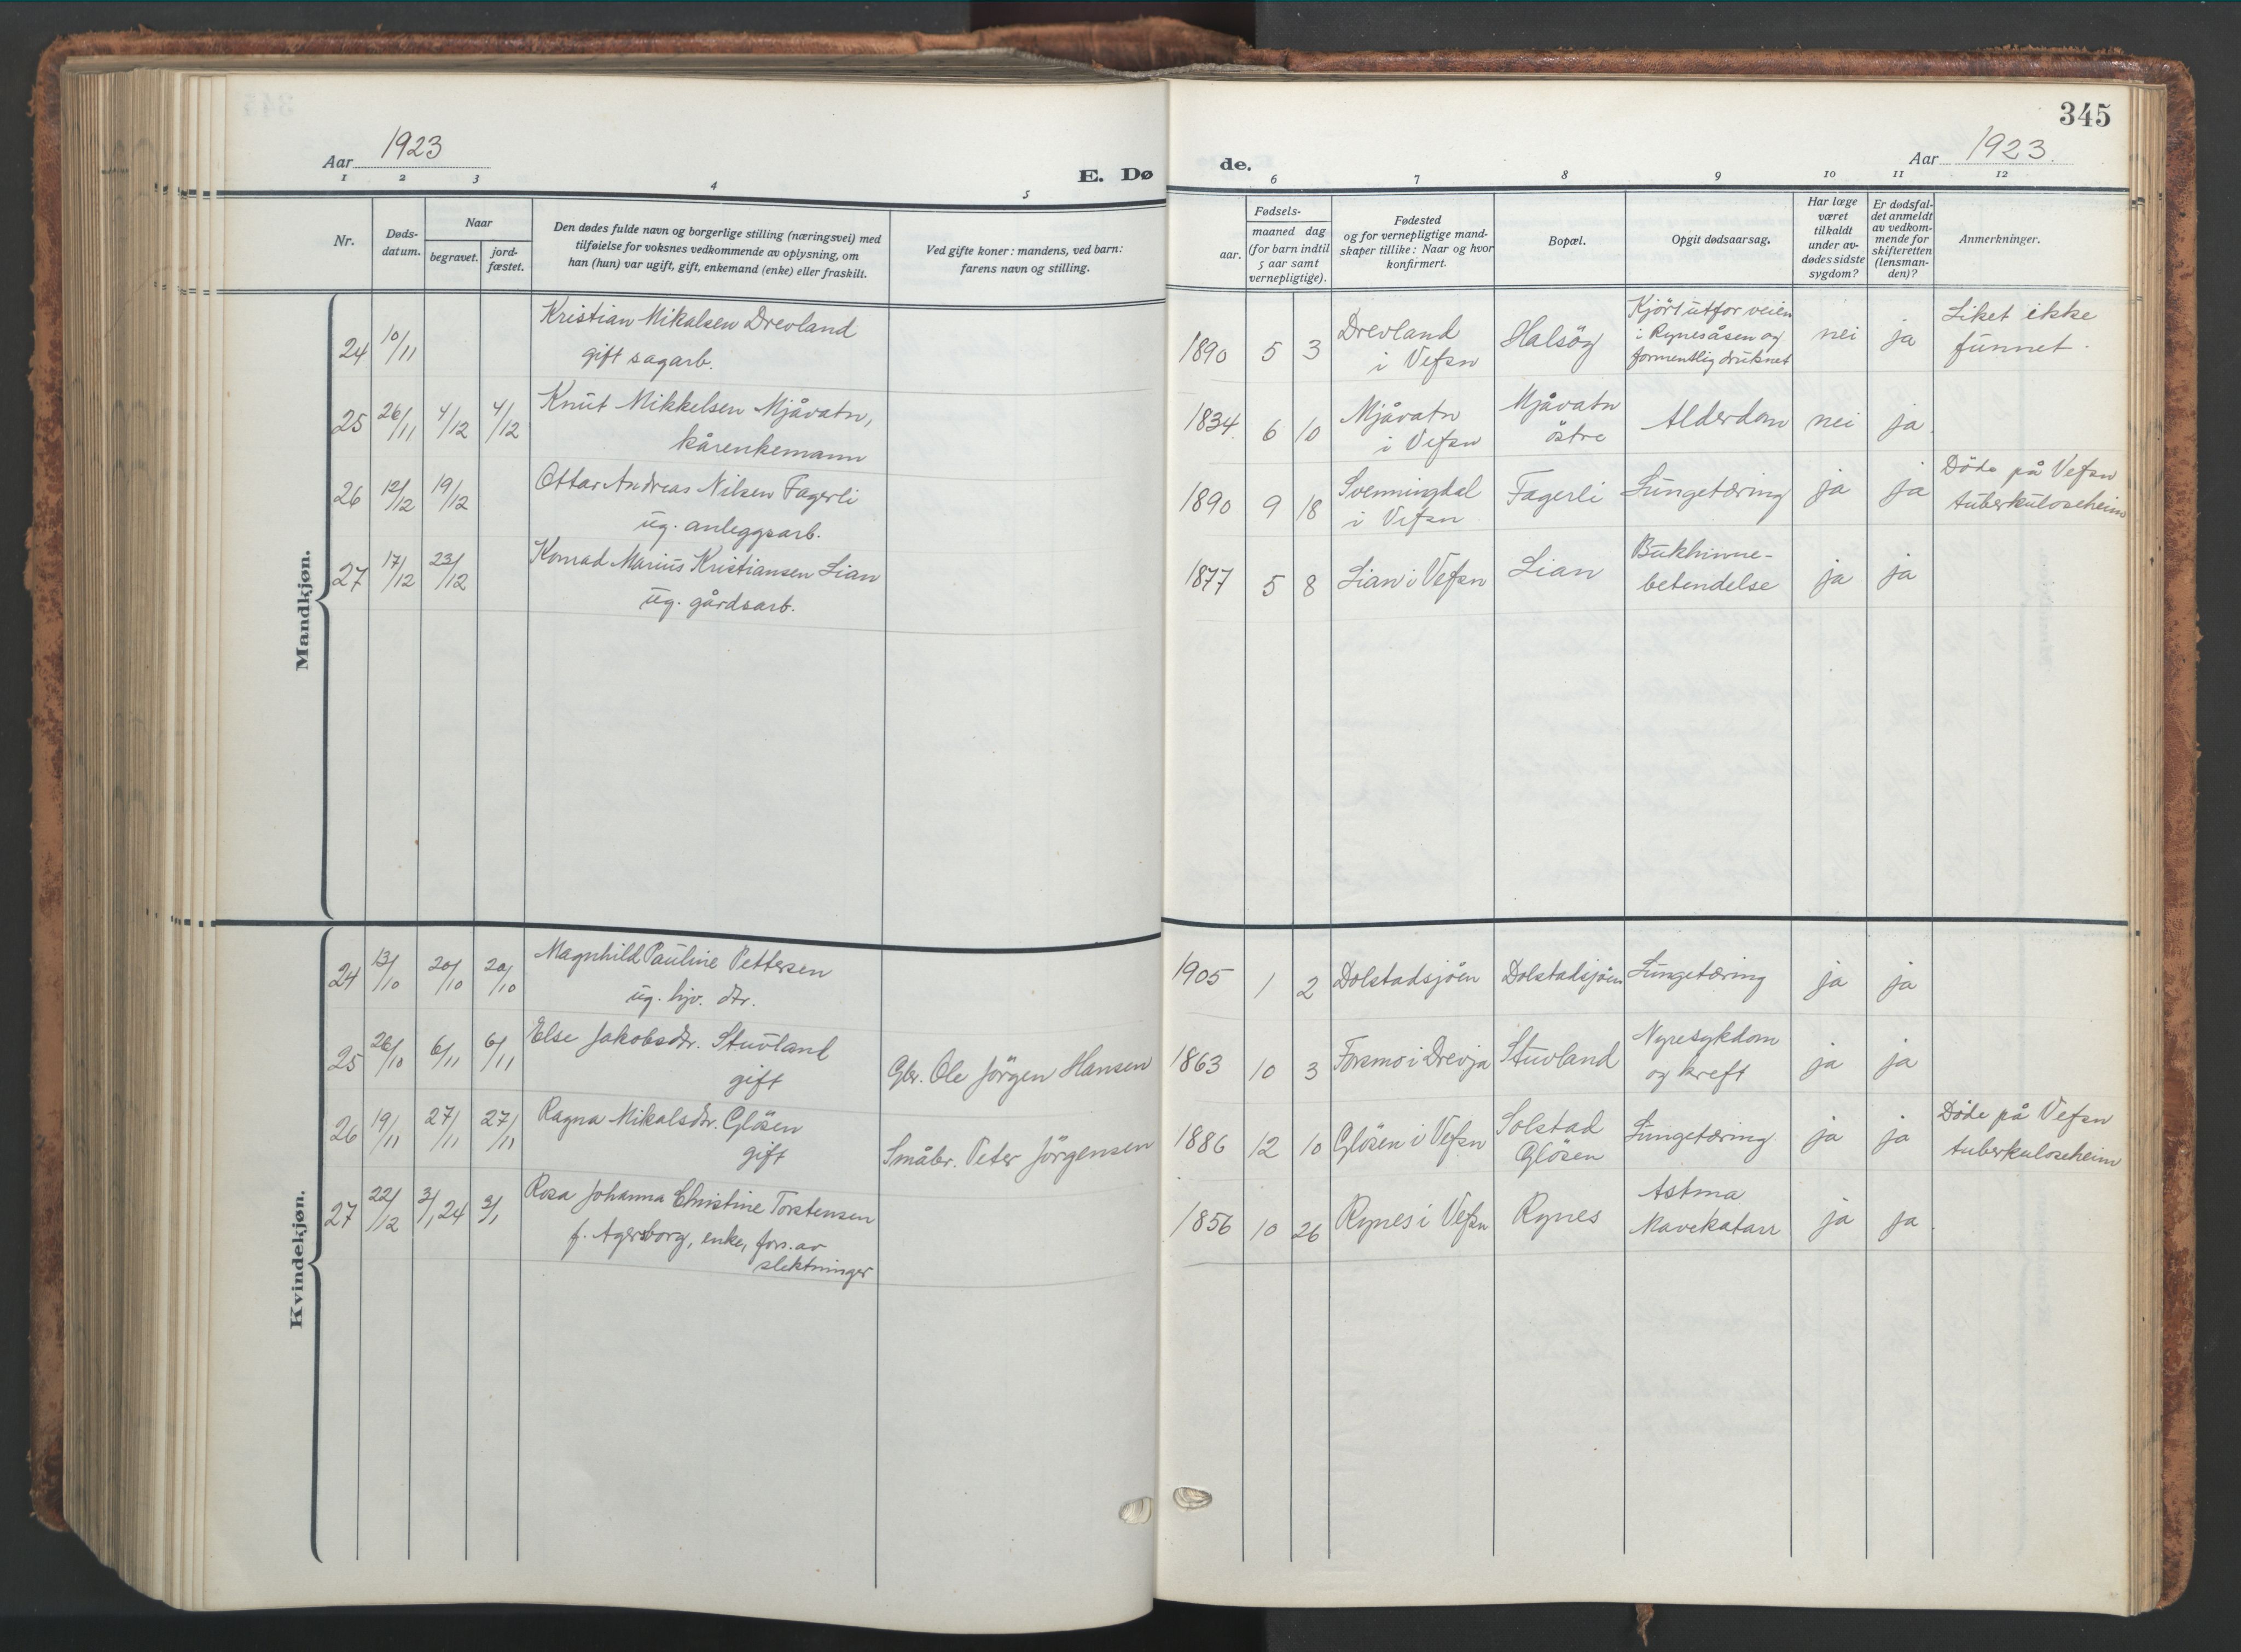 345
Aar 1923
E. Dø
de.
Aar 1923.
1 2 3 4 5 6 7 8 9 10 11 12
Nr.
Døds-
datum.
Naar
begravet.
jord-
fæstet.
Den dødes fulde navn og borgerlige stilling (næringsvei) med
tilføielse for voksnes vedkommende av oplysning, om
han (hun) var ugift, gift, enkemand (enke) eller fraskilt.
Ved gifte koner: mandens, ved barn:
farens navn og stilling.
Fødsels-
aar.
maaned dag
(for barn indtil
5 aar samt
vernepligtige).
Fødested
og for vernepligtige mand-
skaper tillike: Naar og hvor
konfirmert.
Bopæl.
Opgit dødsaarsag.
Har læge
været
tilkaldt
under av-
dødes sidste
sygdom?
Er dødsfal-
det anmeldt
av vedkom-
mende for
skifteretten
(lensman-
den)?
Anmerkninger.
Mandkjøn.
24 10/11 Kristian Mikalsen Drevland
gift sagarb.
1890 5 3 Drevland
i Vefsn
Halsöy
Kjört utfor veien
i Rynesåsen og
formentlig druknet
nei ja
Liket ikke
funnet.
25 26/11 4/12 4/12 Knut Mikkelsen Mjåvatn,
kårenkemann
1834 6 10 Mjåvatn
i Vefsn
Mjåvatn
östre
Alderdom nei ja.
26 12/12 19/12 Ottar Andreas Nilsen Fagerli
ug. anleggsarb.
1890 9 18 Svenningdal
i Vefsn
Fagerli Lungetæring ja ja
Döde på Vefsn
tuberkuloseheim
27 17/12 23/12 Konrad Marius Kristiansen Lian
ug. gårdsarb.
1877 5 8 Lian i Vefsn Lian
Bukhinne-
betendelse
ja ja
Kvindekjøn.
24 13/10 20/10 20/10 Magnhild Pauline Pettersen
ug. hjv. dtr.
1905 1 2 Dolstadsjöen Dolstadsjöen Lungetæring ja ja
25 26/10 6/11 6/11 Else Jakobsdtr. Stuvland
gift
Gbr. Ole Jörgen Hansen
1863 10 3 Forsmo i Drevja Stuvland
Nyresykdom
og kreft
ja ja
26 19/11 27/11 27/11 Ragna Mikalsdtr. Glösen
gift
Småbr. Peter Jörgensen
1886 12 10 Glösen i Vefsn
Solstad
Glösen
Lungetæring. ja ja
Döde på Vefsn
tuberkuloseheim
27 22/12 3/1 24 3/1 Rosa Johanna Christine Torstensen
f. Agersborg, enke, fors. av
slektninger
1856 10 26 Rynes i Vefsn Rynes
Astma
Mavekatarr
ja ja.